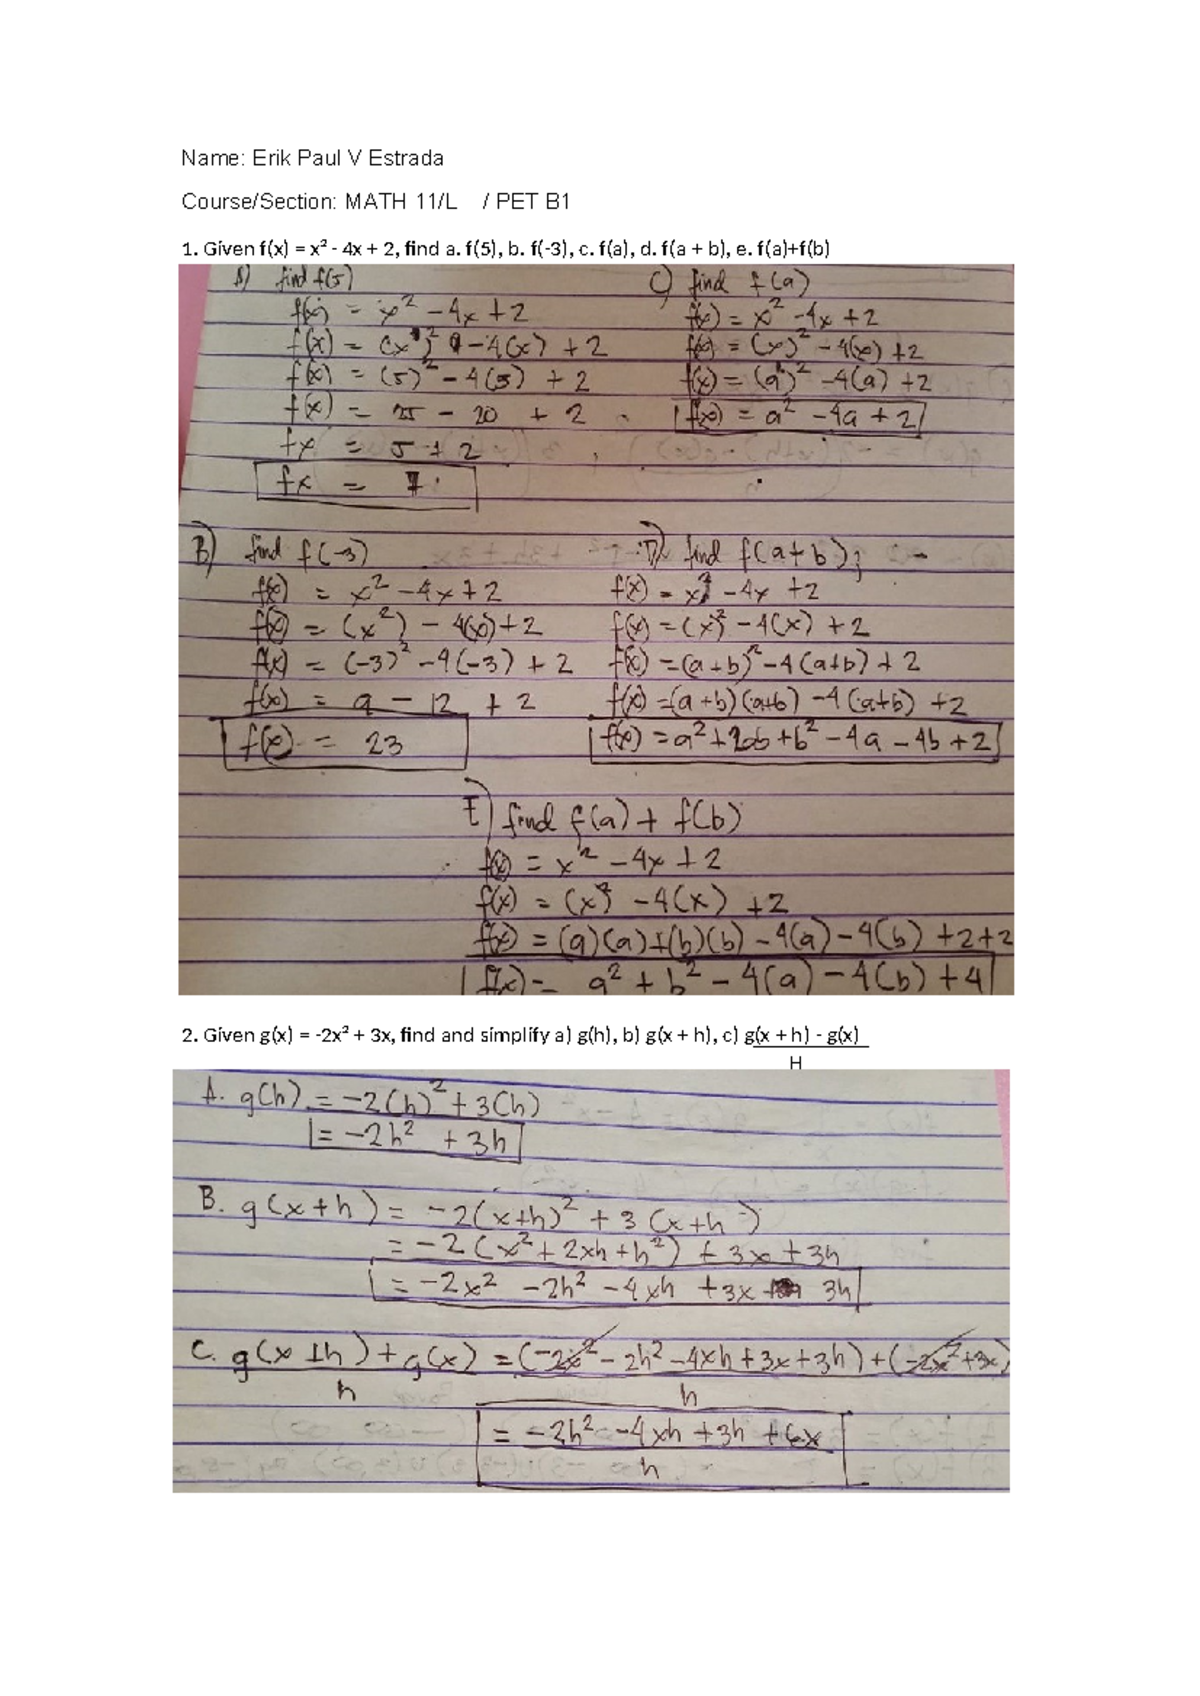 Name: Erik Paul V Estrada
Course/Section: MATH 11/L / PET B1
1. Given f(x) = x² - 4x + 2, find a. f(5), b. f(-3), c. f(a), d. f(a + b), e. f(a)+f(b)
A) find f(5)
f(x) = x² - 4x + 2
f(x) = (x)² - 4(x) + 2
f(x) = (5)² - 4(5) + 2
f(x) = 25 - 20 + 2
fx = 5 + 2
fx = 7
C) find f(a)
f(x) = x² - 4x + 2
f(x) = (x)² - 4(x) + 2
f(x) = (a)² - 4(a) + 2
f(x) = a² - 4a + 2
B) find f(-3)
f(x) = x² - 4x + 2
f(x) = (x²) - 4(x) + 2
f(x) = (-3)² - 4(-3) + 2
f(x) = 9 - 12 + 2
f(x) = 23
D) find f(a+b);
f(x) = x² - 4x + 2
f(x) = (x)² - 4(x) + 2
f(x) = (a+b)² - 4(a+b) + 2
f(x) = (a+b)(a+b) - 4(a+b) + 2
f(x) = a² + 2ab + b² - 4a - 4b + 2
E) find f(a) + f(b)
f(x) = x² - 4x + 2
f(x) = (x)² - 4(x) + 2
f(x) = (a)(a)+(b)(b) - 4(a) - 4(b) + 2+2
f(x) = a² + b² - 4(a) - 4(b) + 4
2. Given g(x) = -2x² + 3x, find and simplify a) g(h), b) g(x + h), c) g(x + h) - g(x)
H
A. g(h) = -2(h)² + 3(h)
= -2h² + 3h
B. g(x+h) = -2(x+h)² + 3(x+h)
= -2(x² + 2xh + h²) + 3x + 3h
= -2x² - 2h² - 4xh + 3x + 3h
C. g(x+h) + g(x) = (-2x² - 2h² - 4xh + 3x + 3h) + (-2x² + 3x)
h h
= -2h² - 4xh + 3h + 6x
h